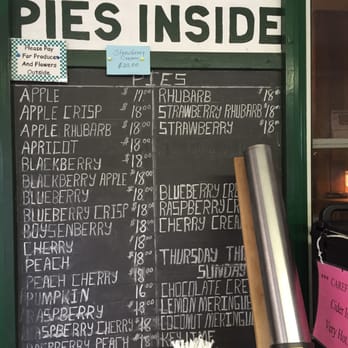 PIES INSIDE
Please Pay
For Produce
And Flowers
Outside
Strawberry
Cream
$20.00
PIES
APPLE $17.00
APPLE CRISP $18.00
APPLE RHUBARB $18.00
APRICOT $18.00
BLACKBERRY $18.00
BLACKBERRY APPLE $18.00
BLUEBERRY $18.00
BLUEBERRY CRISP $18.00
BOYSENBERRY $18.00
CHERRY $18.00
PEACH $18.00
PEACH CHERRY $18.00
PUMPKIN $16
RASPBERRY $18.00
RASPBERRY CHERRY $18
RASPBERRY PEACH $18
RHUBARB $18
STRAWBERRY RHUBARB $18
STRAWBERRY $18
BLUEBERRY CRE
RASPBERRY CRE
CHERRY CREA
THURSDAY THR
SUNDAY
CHOCOLATE CRE
LEMON MERINGUE
COCONUT MERINGU
KEY LIME
*** CAREF
Cider
Very Hot